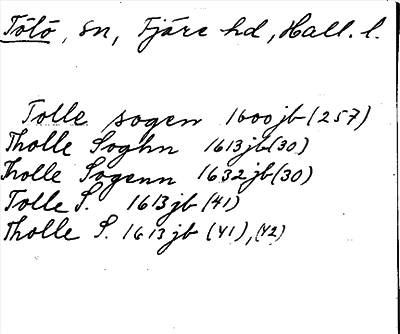 Tölö, sn, Fjäre hd, Hall. l.
Tolle sogen 1600jb(257)
Tholle Soghn 1613jb(30)
Tholle Sogenn 1632jb(30)
Tolle S. 1613jb(41)
Tholle S. 1613jb (41), (42)